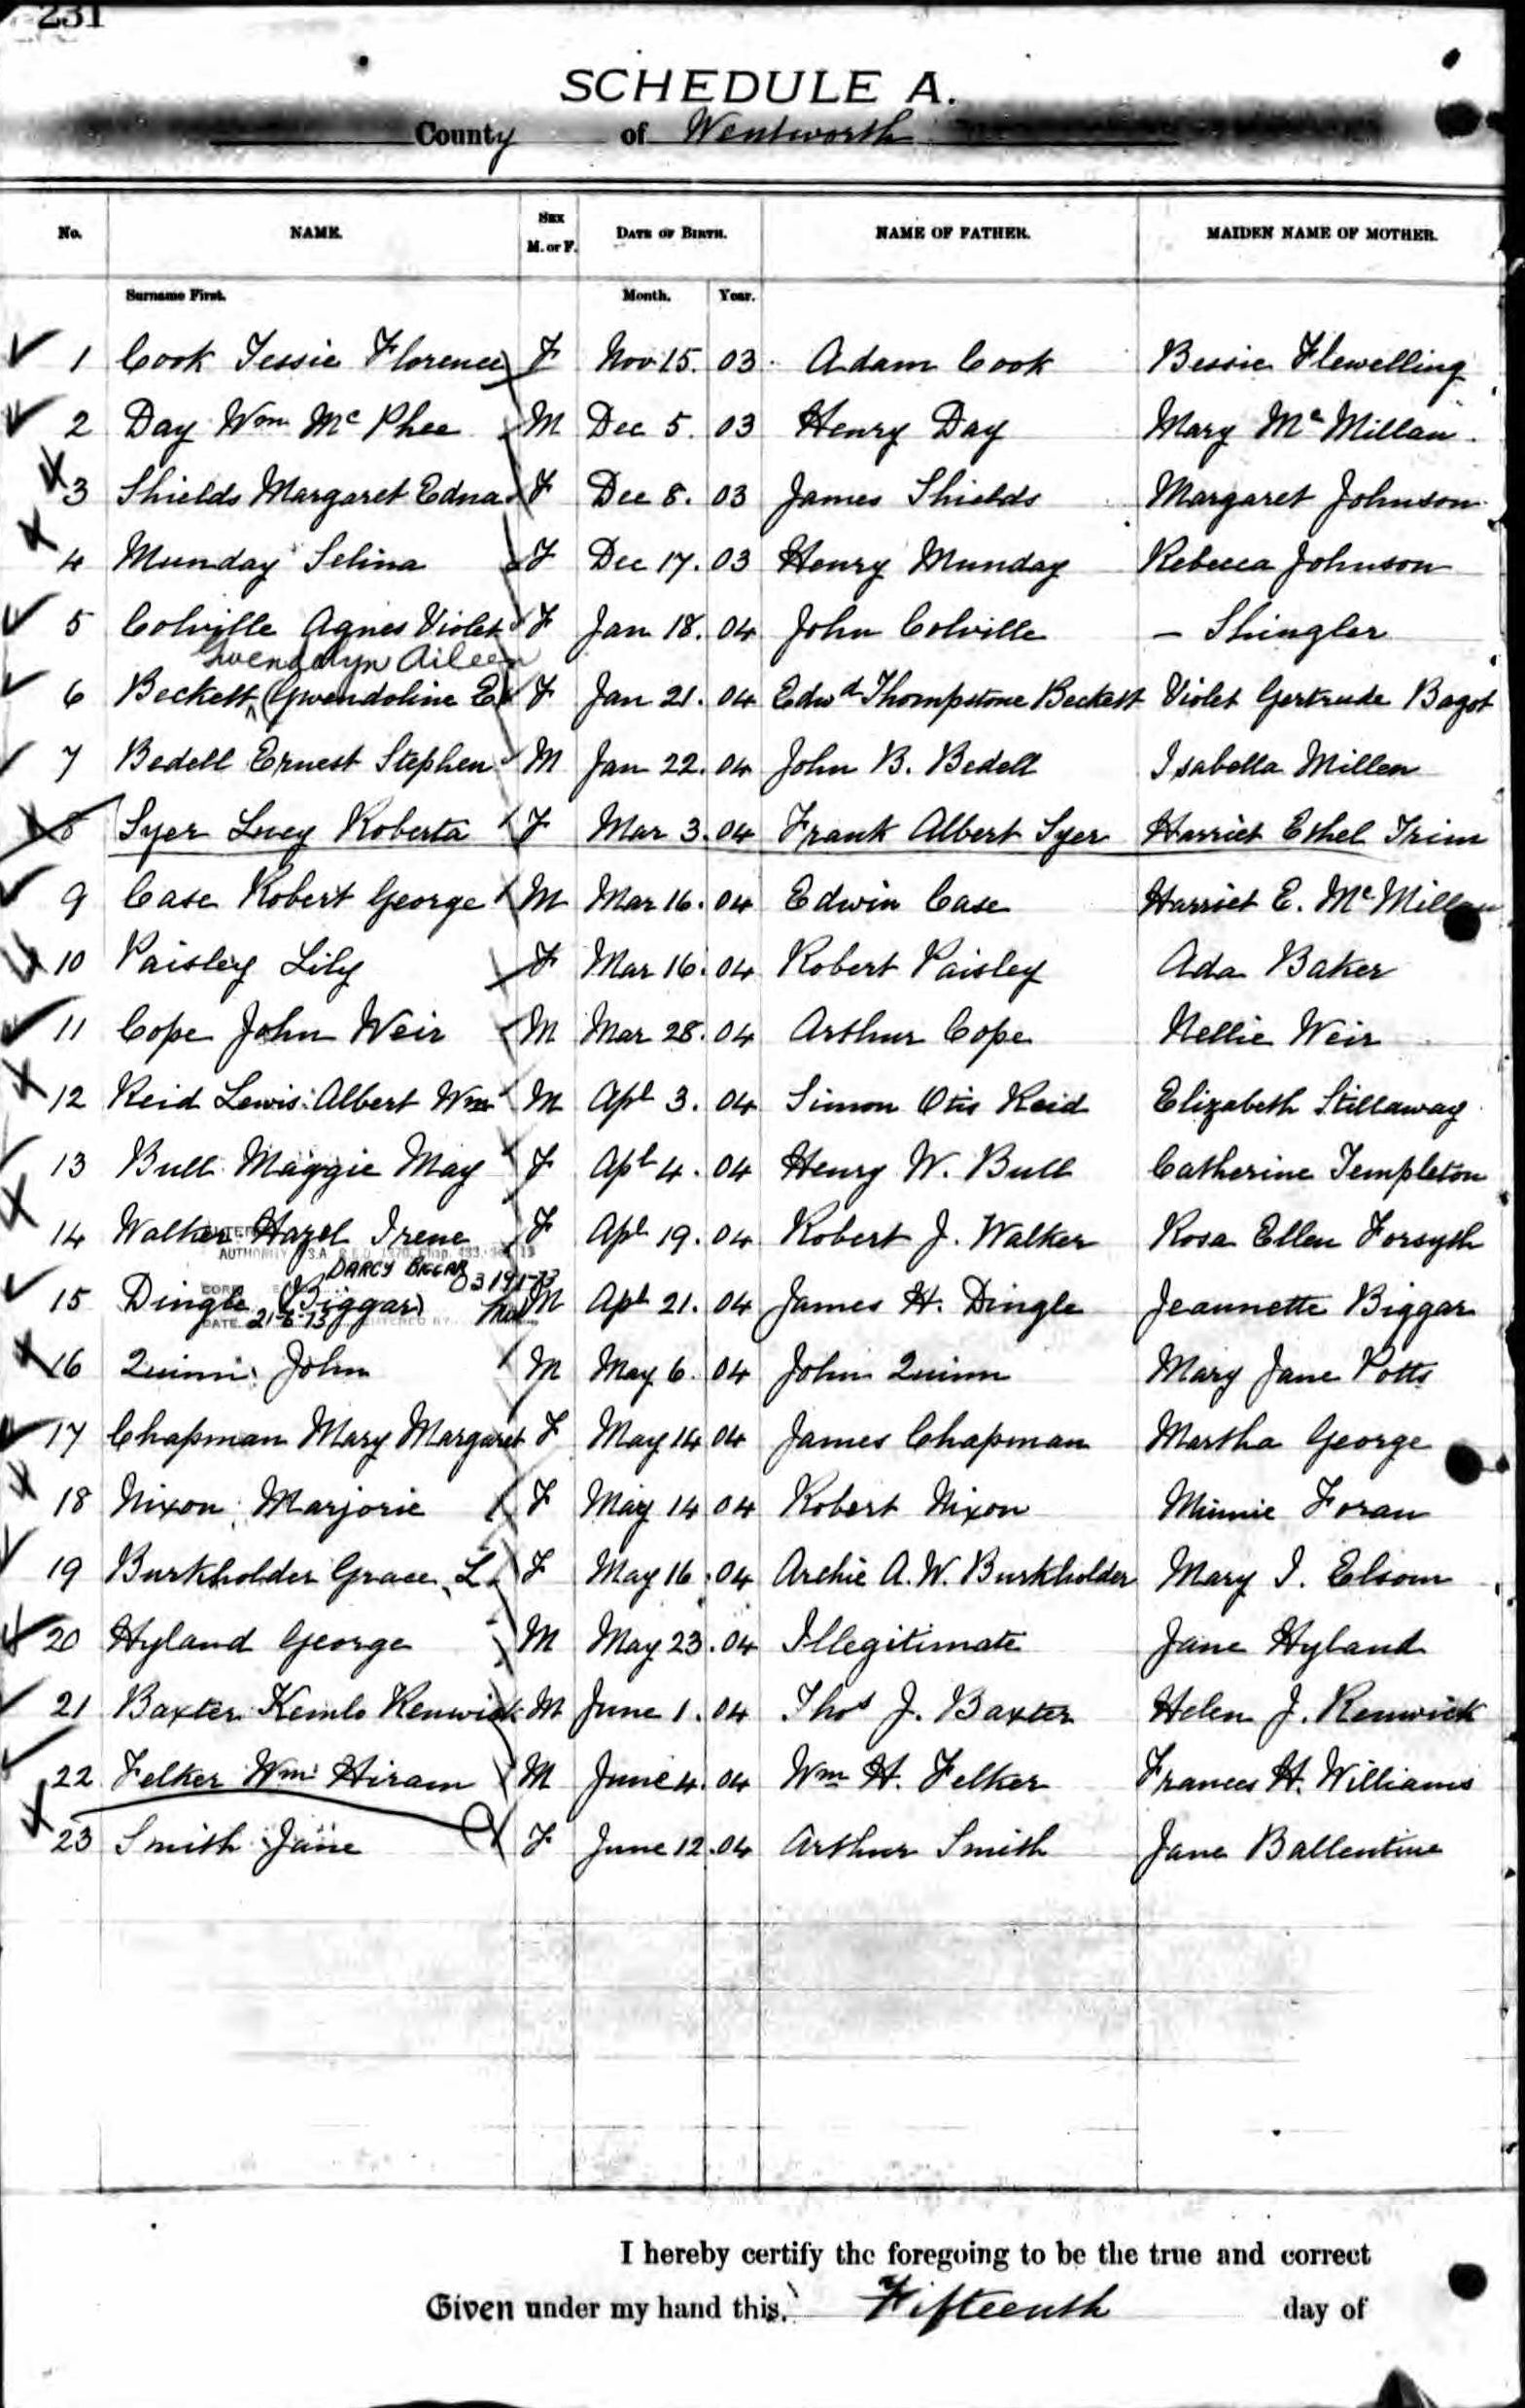 231
SCHEDULE A.
County of Wentworth
No. NAME. SEX M. or F. DATE OF BIRTH. NAME OF FATHER. MAIDEN NAME OF MOTHER.
Surname First. Month. Year.
1 Cook Jessie Florence F Nov 15. 03 Adam Cook Bessie Flewelling
2 Day Wm Mc Phee M Dec 5. 03 Henry Day Mary Mc Millan
3 Shields Margaret Edna F Dec 8. 03 James Shields Margaret Johnson
4 Munday Selina F Dec 17. 03 Henry Munday Rebecca Johnson
5 Colville Agnes Violet F Jan 18. 04 John Colville — Shingler
Gwendolyn Aileen
6 Beckett (Gwendoline E) F Jan 21. 04 Edwd Thompstone Beckett Violet Gertrude Bagot
7 Bedell Ernest Stephen M Jan 22. 04 John B. Bedell Isabella Millen
8 Syer Lucy Roberta F Mar 3. 04 Frank Albert Syer Harriet Ethel Trim
9 Case Robert George M Mar 16. 04 Edwin Case Harriet E. Mc Millan
10 Paisley Lily F Mar 16. 04 Robert Paisley Ada Baker
11 Cope John Weir M Mar 28. 04 Arthur Cope Nellie Weir
12 Reid Lewis Albert Wm M Apl 3. 04 Simon Otis Reid Elizabeth Stillaway
13 Bull Maggie May F Apl 4. 04 Henry W. Bull Catherine Templeton
14 Walker Hazel Irene F Apl 19. 04 Robert J. Walker Rosa Ellen Forsyth
AUTHORITY
DARCY BIGGAR
15 Dingle (Biggar) M Apl 21. 04 James H. Dingle Jeannette Biggar
DATE 21-6-73
16 Quinn John M May 6. 04 John Quinn Mary Jane Potts
17 Chapman Mary Margaret F May 14 04 James Chapman Martha George
18 Nixon Marjorie F May 14 04 Robert Nixon Minnie Foran
19 Burkholder Grace L. F May 16. 04 Archie A. W. Burkholder Mary I. Elsom
20 Hyland George M May 23. 04 Illegitimate Jane Hyland
21 Baxter Kemlo Renwick M June 1. 04 Thos J. Baxter Helen J. Renwick
22 Felker Wm Hiram M June 4. 04 Wm H. Felker Frances H. Williams
23 Smith Jane F June 12. 04 Arthur Smith Jane Ballentine
I hereby certify the foregoing to be the true and correct
Given under my hand this. Fifteenth day of